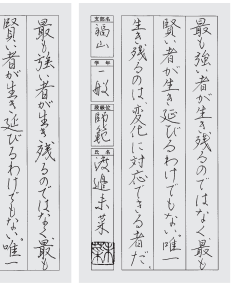 最も強い者が生き残るのではなく最も
賢い者が生き延びるわけでもない。唯一
生き残るのは、変化に対応できる者だ。
支部名
福山
学年
一般
段級位
師範
氏名
渡邉未菜
最も強い者が生き残るのではなく最も
賢い者が生き延びるわけでもない。唯一